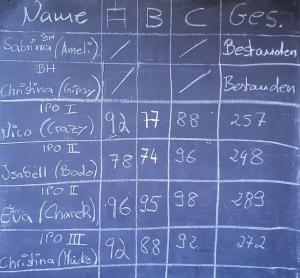 Name A B C Ges.
BH
Sabrina (Ameli) / / Bestanden
BH
Christina (Gipsy) / / Bestanden
IPO I
Nico (Crazy) 92 77 88 257
IPO II
Isabell (Bodo) 78 74 96 248
IPO II
Eva (Charek) 96 95 98 289
IPO III
Christina (Mücke) 92 88 92 272